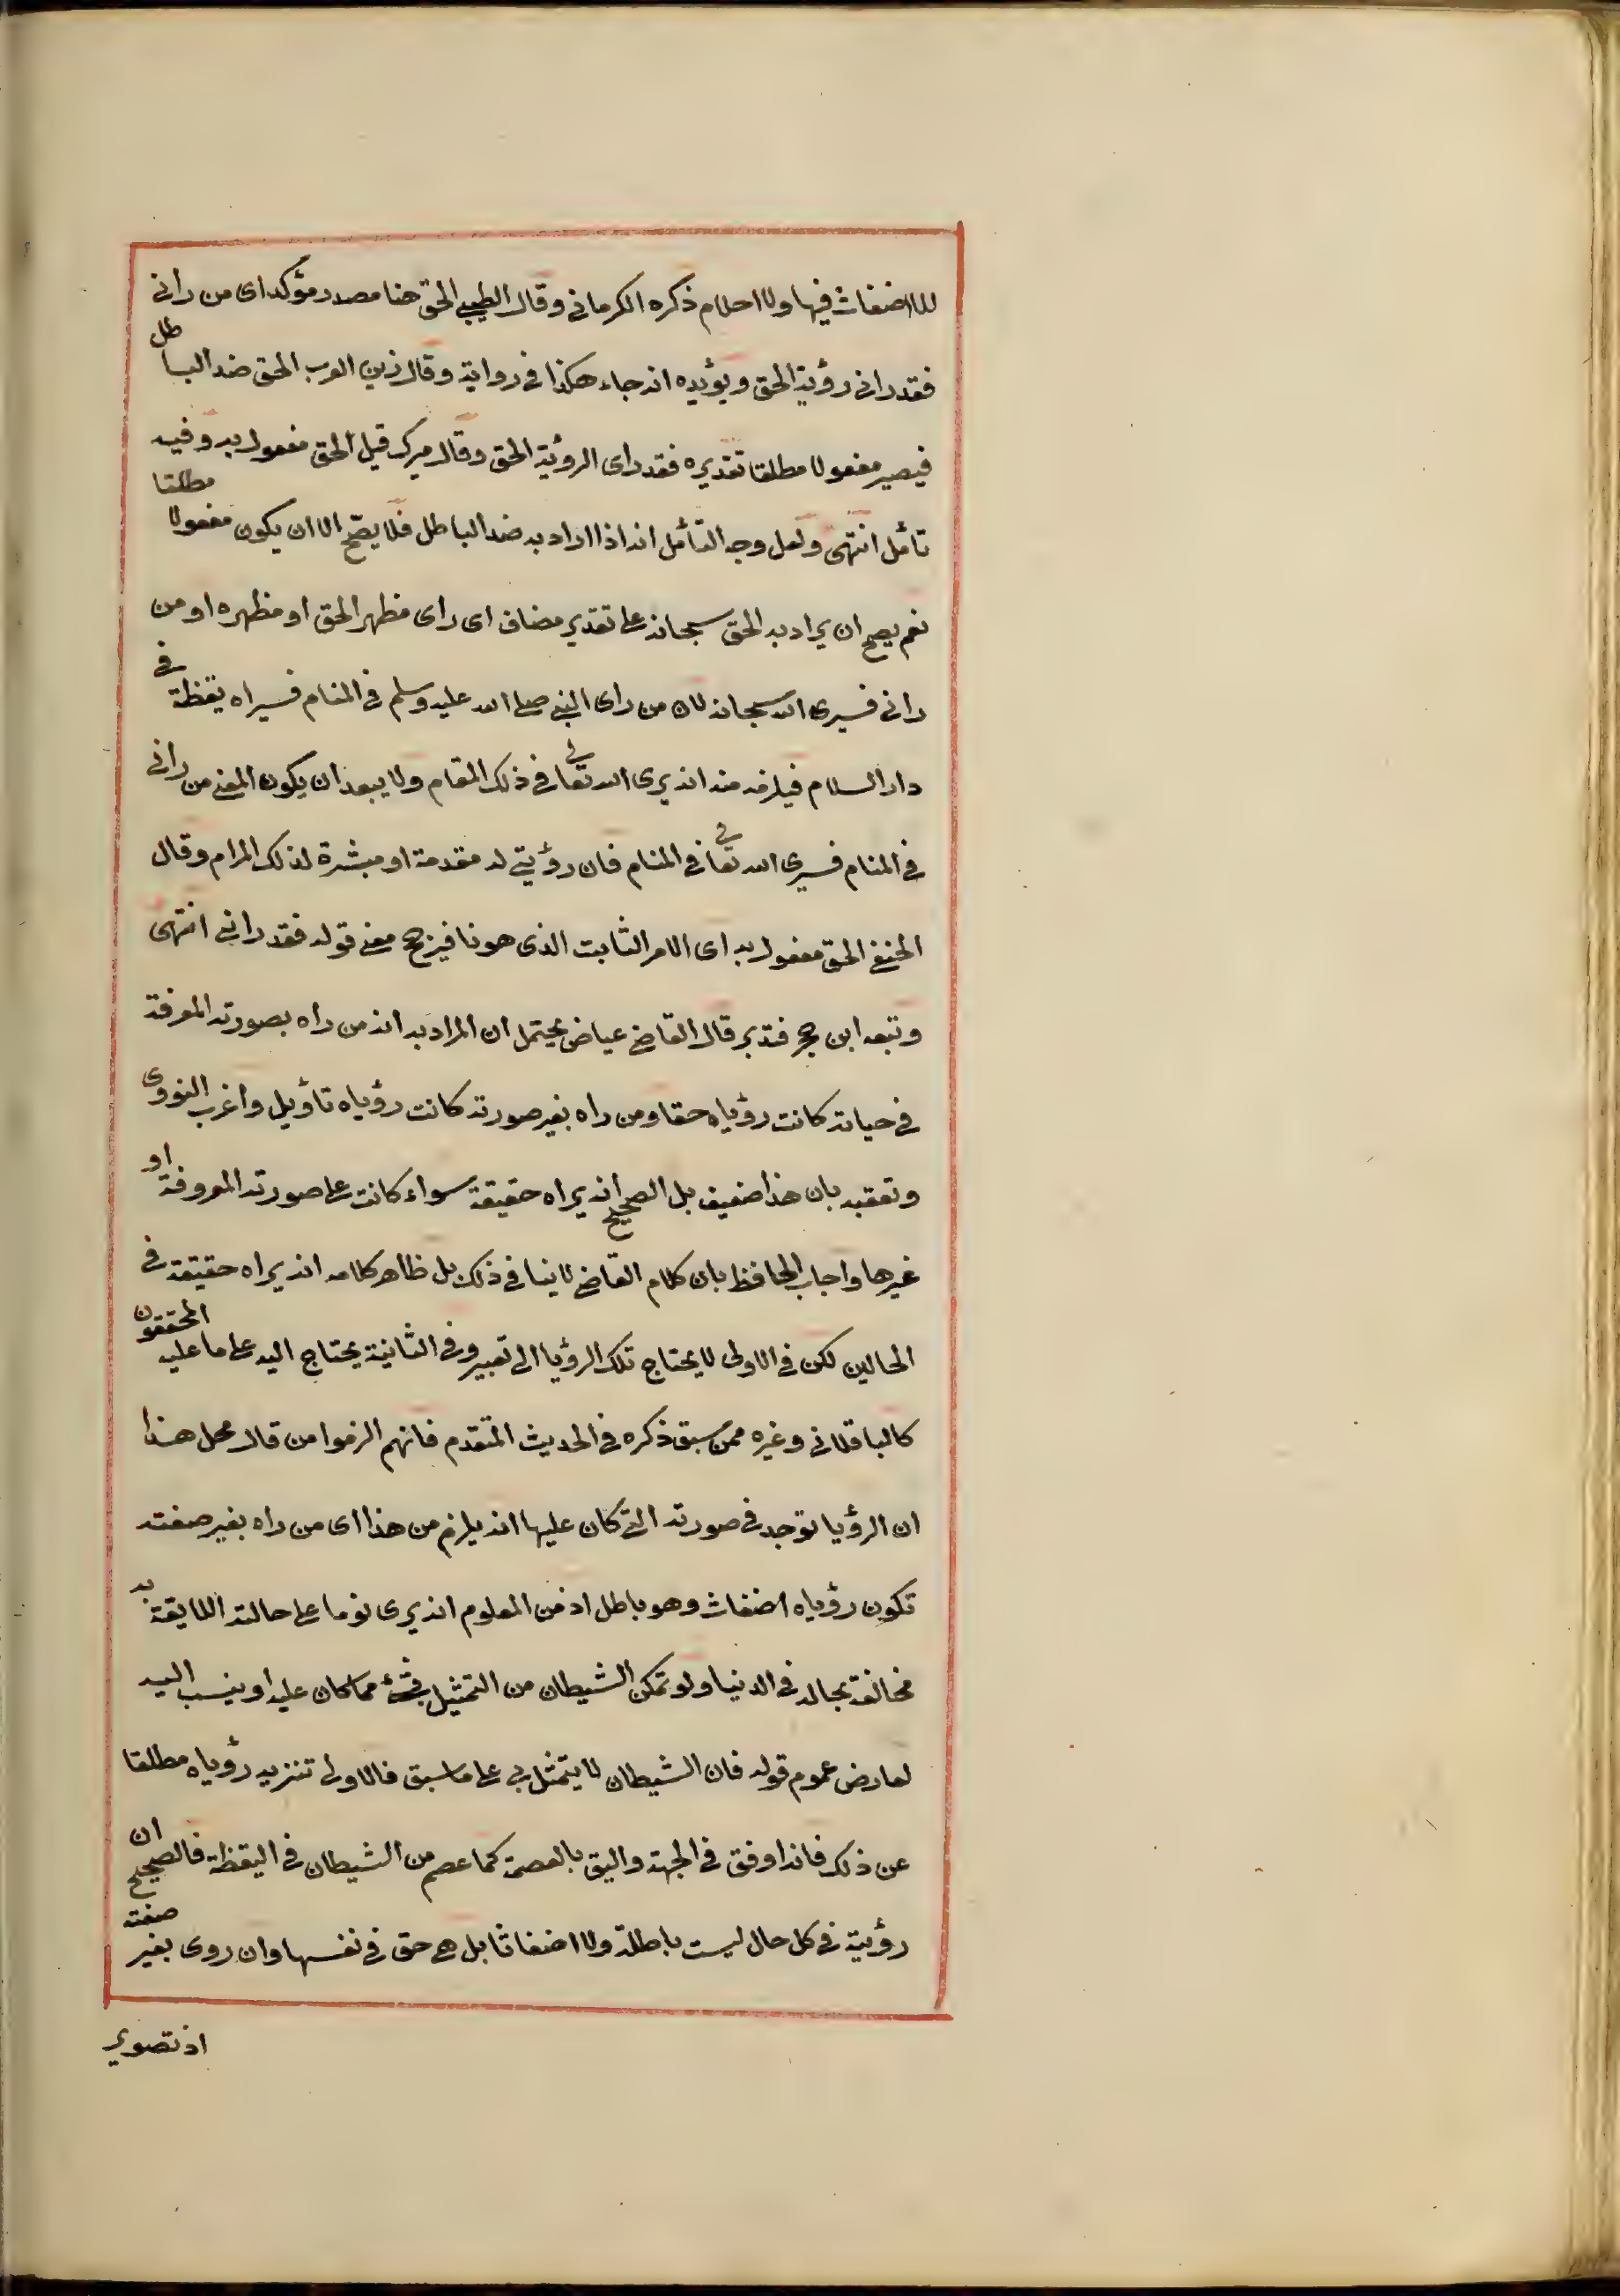 لا اضغاث فيها ولا احلام ذكره الكرماني وقال الطيبي الحق هنا مصدر مؤكد اى من رانى
فقد رانى رؤية الحق ويؤيده انه جاء هكذا في رواية وقال زين العرب الحق ضد الباطل
فيصير مفعولا مطلقا تقديره فقد راى الرؤية الحق وقال ميرك قيل الحق مفعول به وفيه
تأمل انتهى ولعل وجه التأمل انه اذا اراد به ضد الباطل فلا يصح الا ان يكون مفعولا مطلقا
نعم يصح ان يراد به الحق سبحانه على تقدير مضاف اى راى مظهر الحق او مظهره او من
رانى فسيرى الله سبحانه لان من راى النبي صلى الله عليه وسلم في المنام فسيراه يقظة في
دار السلام فيلزم منه انه يرى الله تعالى في ذلك المقام ولا يبعد ان يكون المعنى من رانى
في المنام فسيرى الله تعالى في المنام فان رؤيتي له مقدمة او مبشرة لذلك المرام وقال
الحنفي الحق مفعول به اى الامر الثابت الذى هو انا فيرجع معنى قوله فقد رانى انتهى
وتبعه ابن حجر فتدبر قال القاضي عياض يحتمل ان المراد به انه من راه بصورته المعرفة
في حياته كانت رؤياه حقا ومن راه بغير صورته كانت رؤياه تأويل واغرب النووى
وتعقبه بان هذا ضعيف بل الصحيح انه يراه حقيقة سواء كانت على صورته المعروفة او
غيرها واجاب الحافظ بان كلام القاضي لا ينافي ذلك بل ظاهر كلامه انه يراه حقيقة في
الحالين لكن في الاولى لا يحتاج تلك الرؤيا الى تعبير وفي الثانية يحتاج اليه على ما عليه المحققون
كالباقلاني وغيره ممن سبق ذكره في الحديث المتقدم فانهم الزموا من قال محل هذا
ان الرؤيا توجد في صورته التي كان عليها انه يلزم من هذا اى من راه بغير صفته
تكون رؤياه اضغاث وهو باطل اذ من المعلوم انه يرى نوما على حالته اللايقة به
مخالفة بحاله في الدنيا ولو تمكن الشيطان من التمثيل بشئ مما كان عليه او ينسب اليه
لعارض عموم قوله فان الشيطان لا يتمثل بي على ما سبق فالاولى تنزيه رؤياه مطلقا
عن ذلك فانه اوفق في الجهة واليق بالعصمة كما عصم من الشيطان في اليقظة فالصحيح ان
رؤيته في كل حال ليست باطلة ولا اضغاثا بل هي حق في نفسها وان روى بغير صفته
اذ تصوير